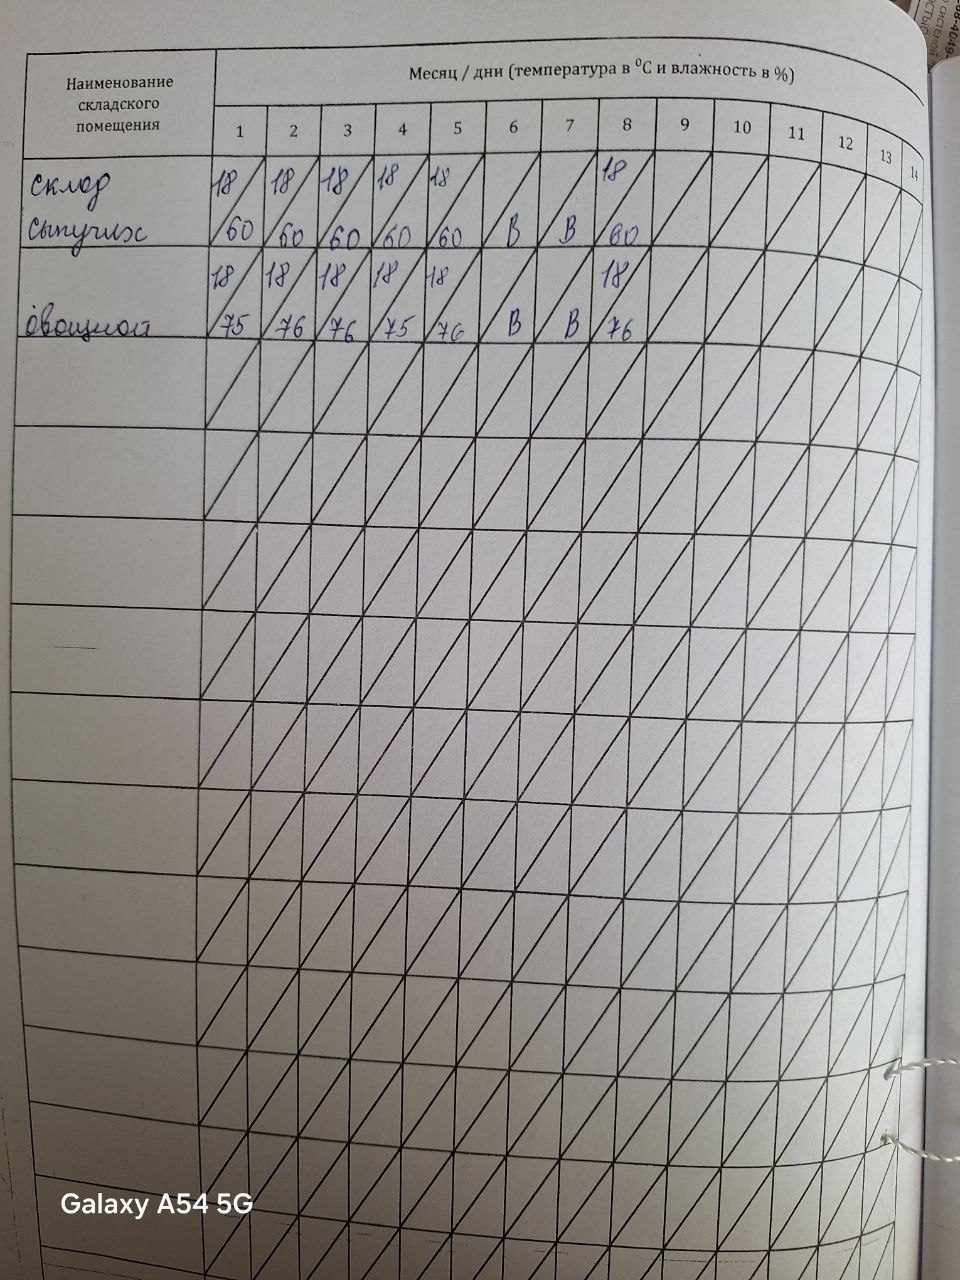 Наименование
складского
помещения
Месяц / дни (температура в ⁰С и влажность в %)
1 2 3 4 5 6 7 8 9 10 11 12 13 14
склад
сыпучих
18 18 18 18 18 18
60 60 60 60 60 В В 60
овощной
18 18 18 18 18 18
75 76 76 75 76 В В 76
Galaxy A54 5G